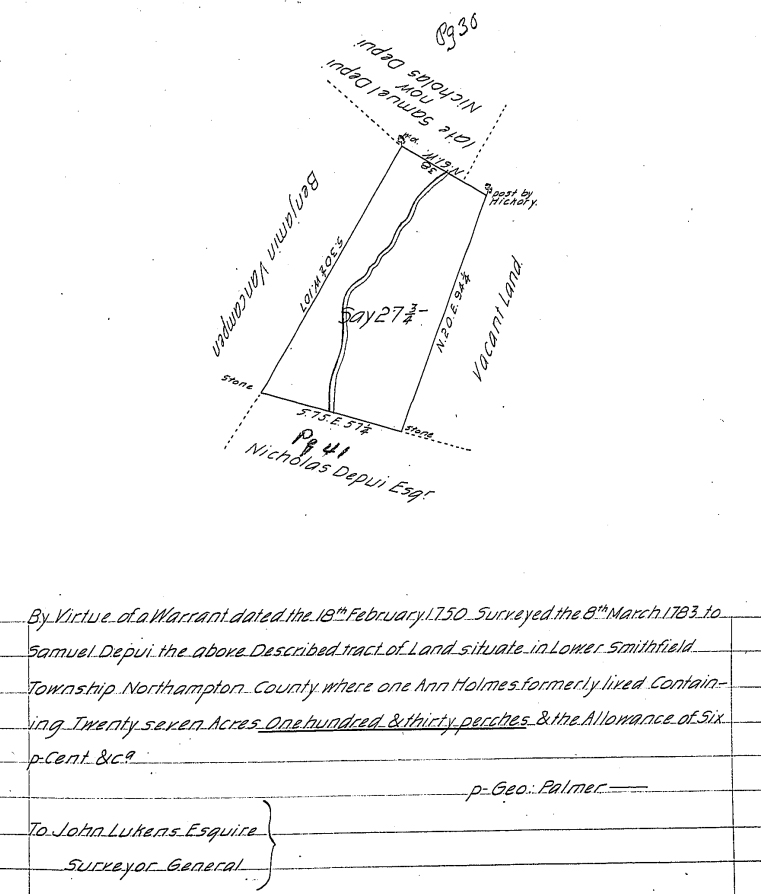 Pg 30
Nicholas Depui
now
late Samuel Depui
w.o.
N.61.W.
38
post by
Hickory.
Benjamin Vancampen
S.30½W.107
Say 27¾-
N.20.E.94¼
Vacant Land.
stone
S.75.E.57¼
stone
Pg 41
Nicholas Depui Esqr
By Virtue of a Warrant dated the 18th February 1750 Surveyed the 8th March 1783 to
Samuel Depui the above Described tract of Land situate in Lower Smithfield
Township Northampton County where one Ann Holmes formerly lived Contain-
ing Twenty seven Acres One hundred & thirty perches & the Allowance of Six
p-Cent &ca
p- Geo: Palmer
To John Lukens Esquire
Surveyor General